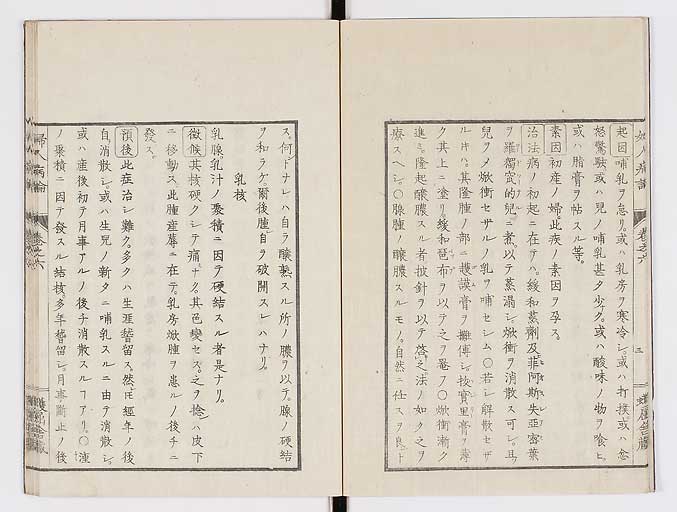 起因哺乳ヲ怠リ。或ハ乳房ヲ寒冷シ。或ハ打撲或ハ忿
怒驚駭或ハ兒ノ哺乳甚タ少ク。或ハ酸味ノ物ヲ喰ヒ。
或ハ脂膏ヲ帖スル等。
素因初産ノ婦此疾ノ素因ヲ孕ス。
治法病ノ初起ニ在テハ。緩和蒸劑及菲阿斯失亞密葉
ヲ羅獨
的兒ニ煮。以テ蒸溻シ焮衝ヲ消散ス可シ。且
兒ヲメ焮衝セサルノ乳ヲ哺セシム〇若シ解散セザ
ルトハ。其隆腫ノ部ニ護謨膏ヲ攤傅シ。按實里膏ヲ薄
ク其上ニ塗リ。緩和琶布ヲ以テ之ヲ罨フ〇焮衝漸ク
進ミ。隆起釀膿スル者披針ヲ以テ
之法ノ如ク之ヲ
療スヘシ。〇腺腫ノ釀膿スルモノ。自然ニ任スヲ良ト
ス。何トナレハ自ラ釀熟スル所ノ膿ヲ以テ。腺ノ硬結
ヲ和ラゲ爾後腫自ラ破開スレハナリ。
乳核
乳腺乳汁ノ聚積ニ因テ硬結スル者是ナリ。
徴候其核硬クシテ痛ナク。其色變セス。之ヲ捻ハ皮下
ニ移動ス此腫産蓐ニ在テ。乳房焮腫ヲ患ルノ後チニ
發ス。
預後此症治シ難ク。多クハ生涯
留ス然トモ經年ノ後
自消散シ。或ハ生兒ノ新タニ哺乳スルニ由テ消散シ。
或ハ産後初テ月事アルノ後チ消散スルヿアリ。〇
ノ聚積ニ因テ發スル結核。多年
留シ。月事斷止ノ後
婦人病論
卷之六
三